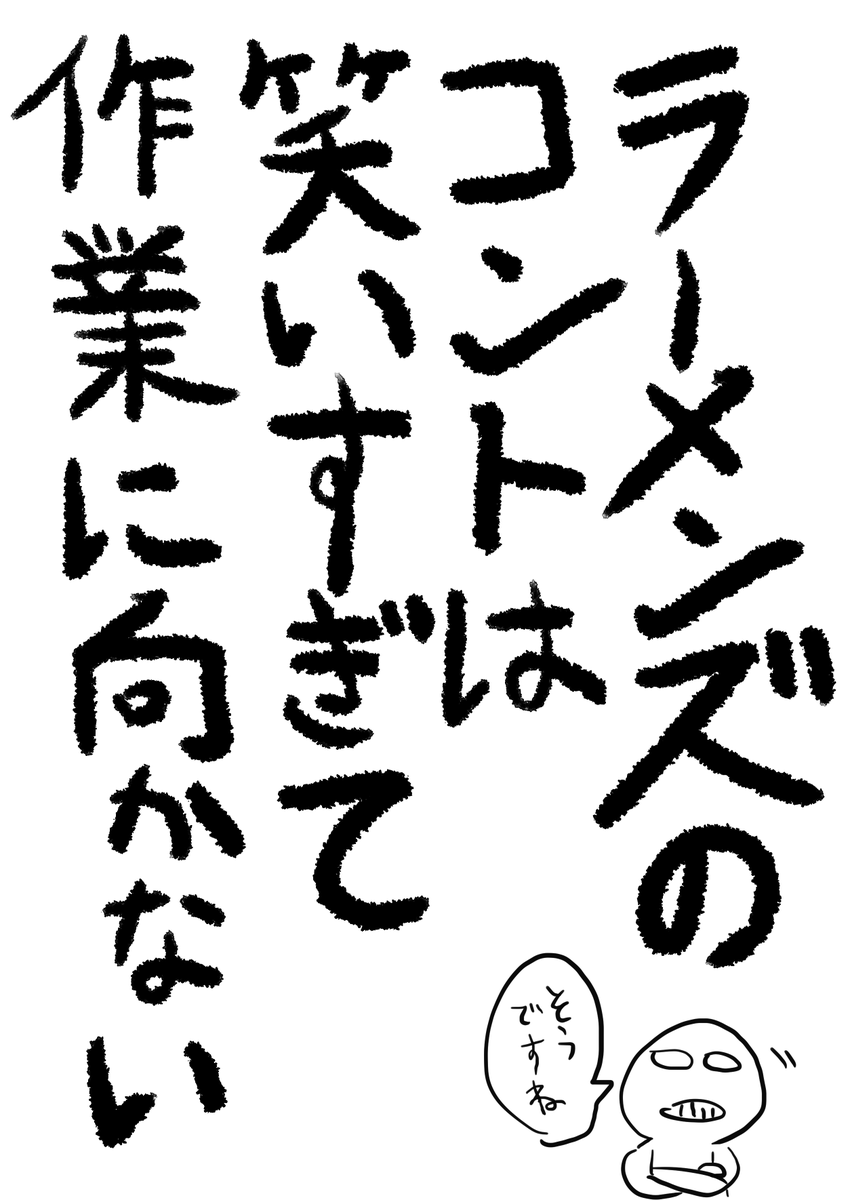 ラーメンズの
コントは
笑いすぎて
作業に向かない
そう
ですね